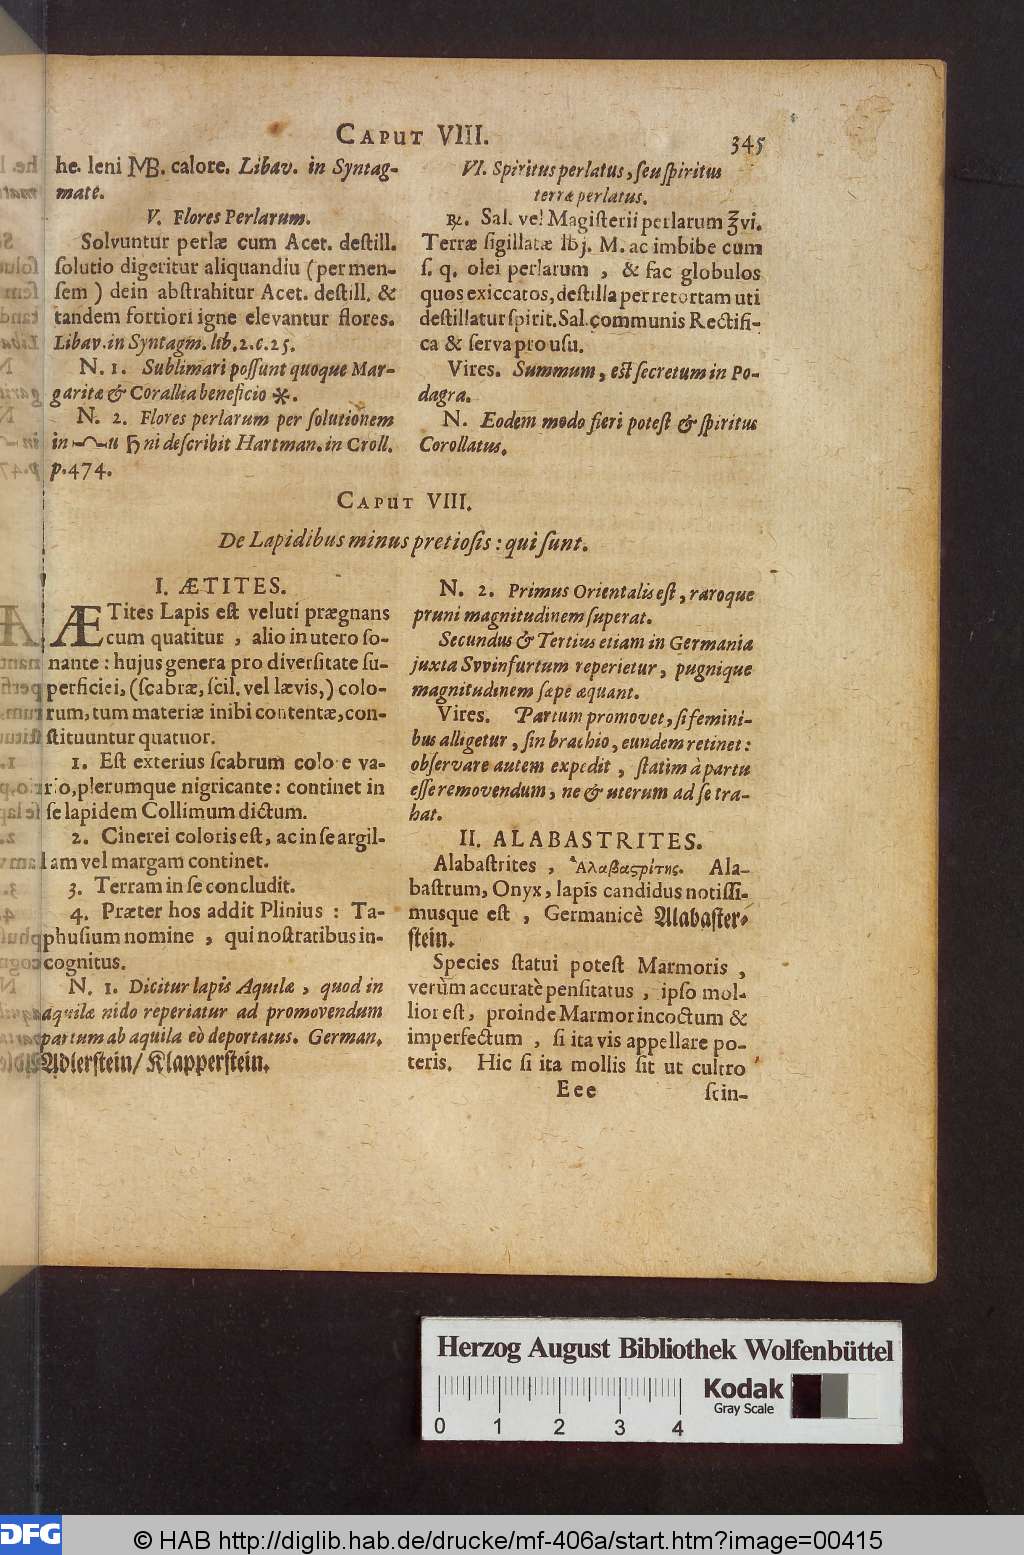 CAPUT VIII.
345
he. leni MB. calore. Libav. in Syntag-
mate.
V. Flores Perlarum.
Solvuntur perlæ cum Acet. deſtill.
ſolutio digeritur aliquandiu (per men-
ſem) dein abſtrahitur Acet. deſtill. &
tandem fortiori igne elevantur flores.
Libav. in Syntagm. lib. 2. c. 25.
N. 1. Sublimari poſſunt quoque Mar-
garitæ & Corallia beneficio ✱.
N. 2. Flores perlarum per ſolutionem
in u ♄ni deſcribit Hartman. in Croll.
p. 474.
VI. Spiritus perlatus, ſeu ſpiritus
terræ perlatus.
℞. Sal. vel Magiſterii perlarum ʒvi.
Terræ ſigillatæ lbj. M. ac imbibe cum
ſ. q. olei perlarum, & fac globulos
quos exiccatos, deſtilla per retortam uti
deſtillatur ſpirit. Sal. communis Rectifi-
ca & ſerva pro uſu.
Vires. Summum, eſt ſecretum in Po-
dagra.
N. Eodem modo fieri poteſt & ſpiritus
Corollatus.
CAPUT VIII.
De Lapidibus minus pretioſis: qui ſunt.
I. ÆTITES.
ÆTites Lapis eſt veluti prægnans
cum quatitur, alio in utero ſo-
nante: hujus genera pro diverſitate ſu-
perficiei, (ſcabræ, ſcil. vel lævis,) colo-
rum, tum materiæ inibi contentæ, con-
ſtituuntur quatuor.
1. Eſt exterius ſcabrum colore va-
rio, plerumque nigricante: continet in
ſe lapidem Collimum dictum.
2. Cinerei coloris eſt, ac in ſe argil-
lam vel margam continet.
3. Terram in ſe concludit.
4. Præter hos addit Plinius: Ta-
phuſium nomine, qui noſtratibus in-
cognitus.
N. 1. Dicitur lapis Aquilæ, quod in
aquilæ nido reperiatur ad promovendum
partum ab aquila eò deportatus. German.
Adlerſtein/ Klapperſtein.
N. 2. Primus Orientalis eſt, raroque
pruni magnitudinem ſuperat.
Secundus & Tertius etiam in Germania
juxta Svvinfurtum reperietur, pugnique
magnitudinem ſæpe æquant.
Vires. Partum promovet, ſi femini-
bus alligetur, ſin brachio, eundem retinet:
obſervare autem expedit, ſtatim à partu
eſſe removendum, ne & uterum ad ſe tra-
hat.
II. ALABASTRITES.
Alabaſtrites, Ἀλαβαϛρίτης. Ala-
baſtrum, Onyx, lapis candidus notiſſi-
musque eſt, Germanicè Alabaſter-
ſtein.
Species ſtatui poteſt Marmoris,
verùm accuratè penſitatus, ipſo mol-
lior eſt, proinde Marmor incoctum &
imperfectum, ſi ita vis appellare po-
teris. Hic ſi ita mollis ſit ut cultro
Eee
ſcin-
Herzog August Bibliothek Wolfenbüttel
0 1 2 3 4
Kodak
Gray Scale
DFG
© HAB http://diglib.hab.de/drucke/mf-406a/start.htm?image=00415